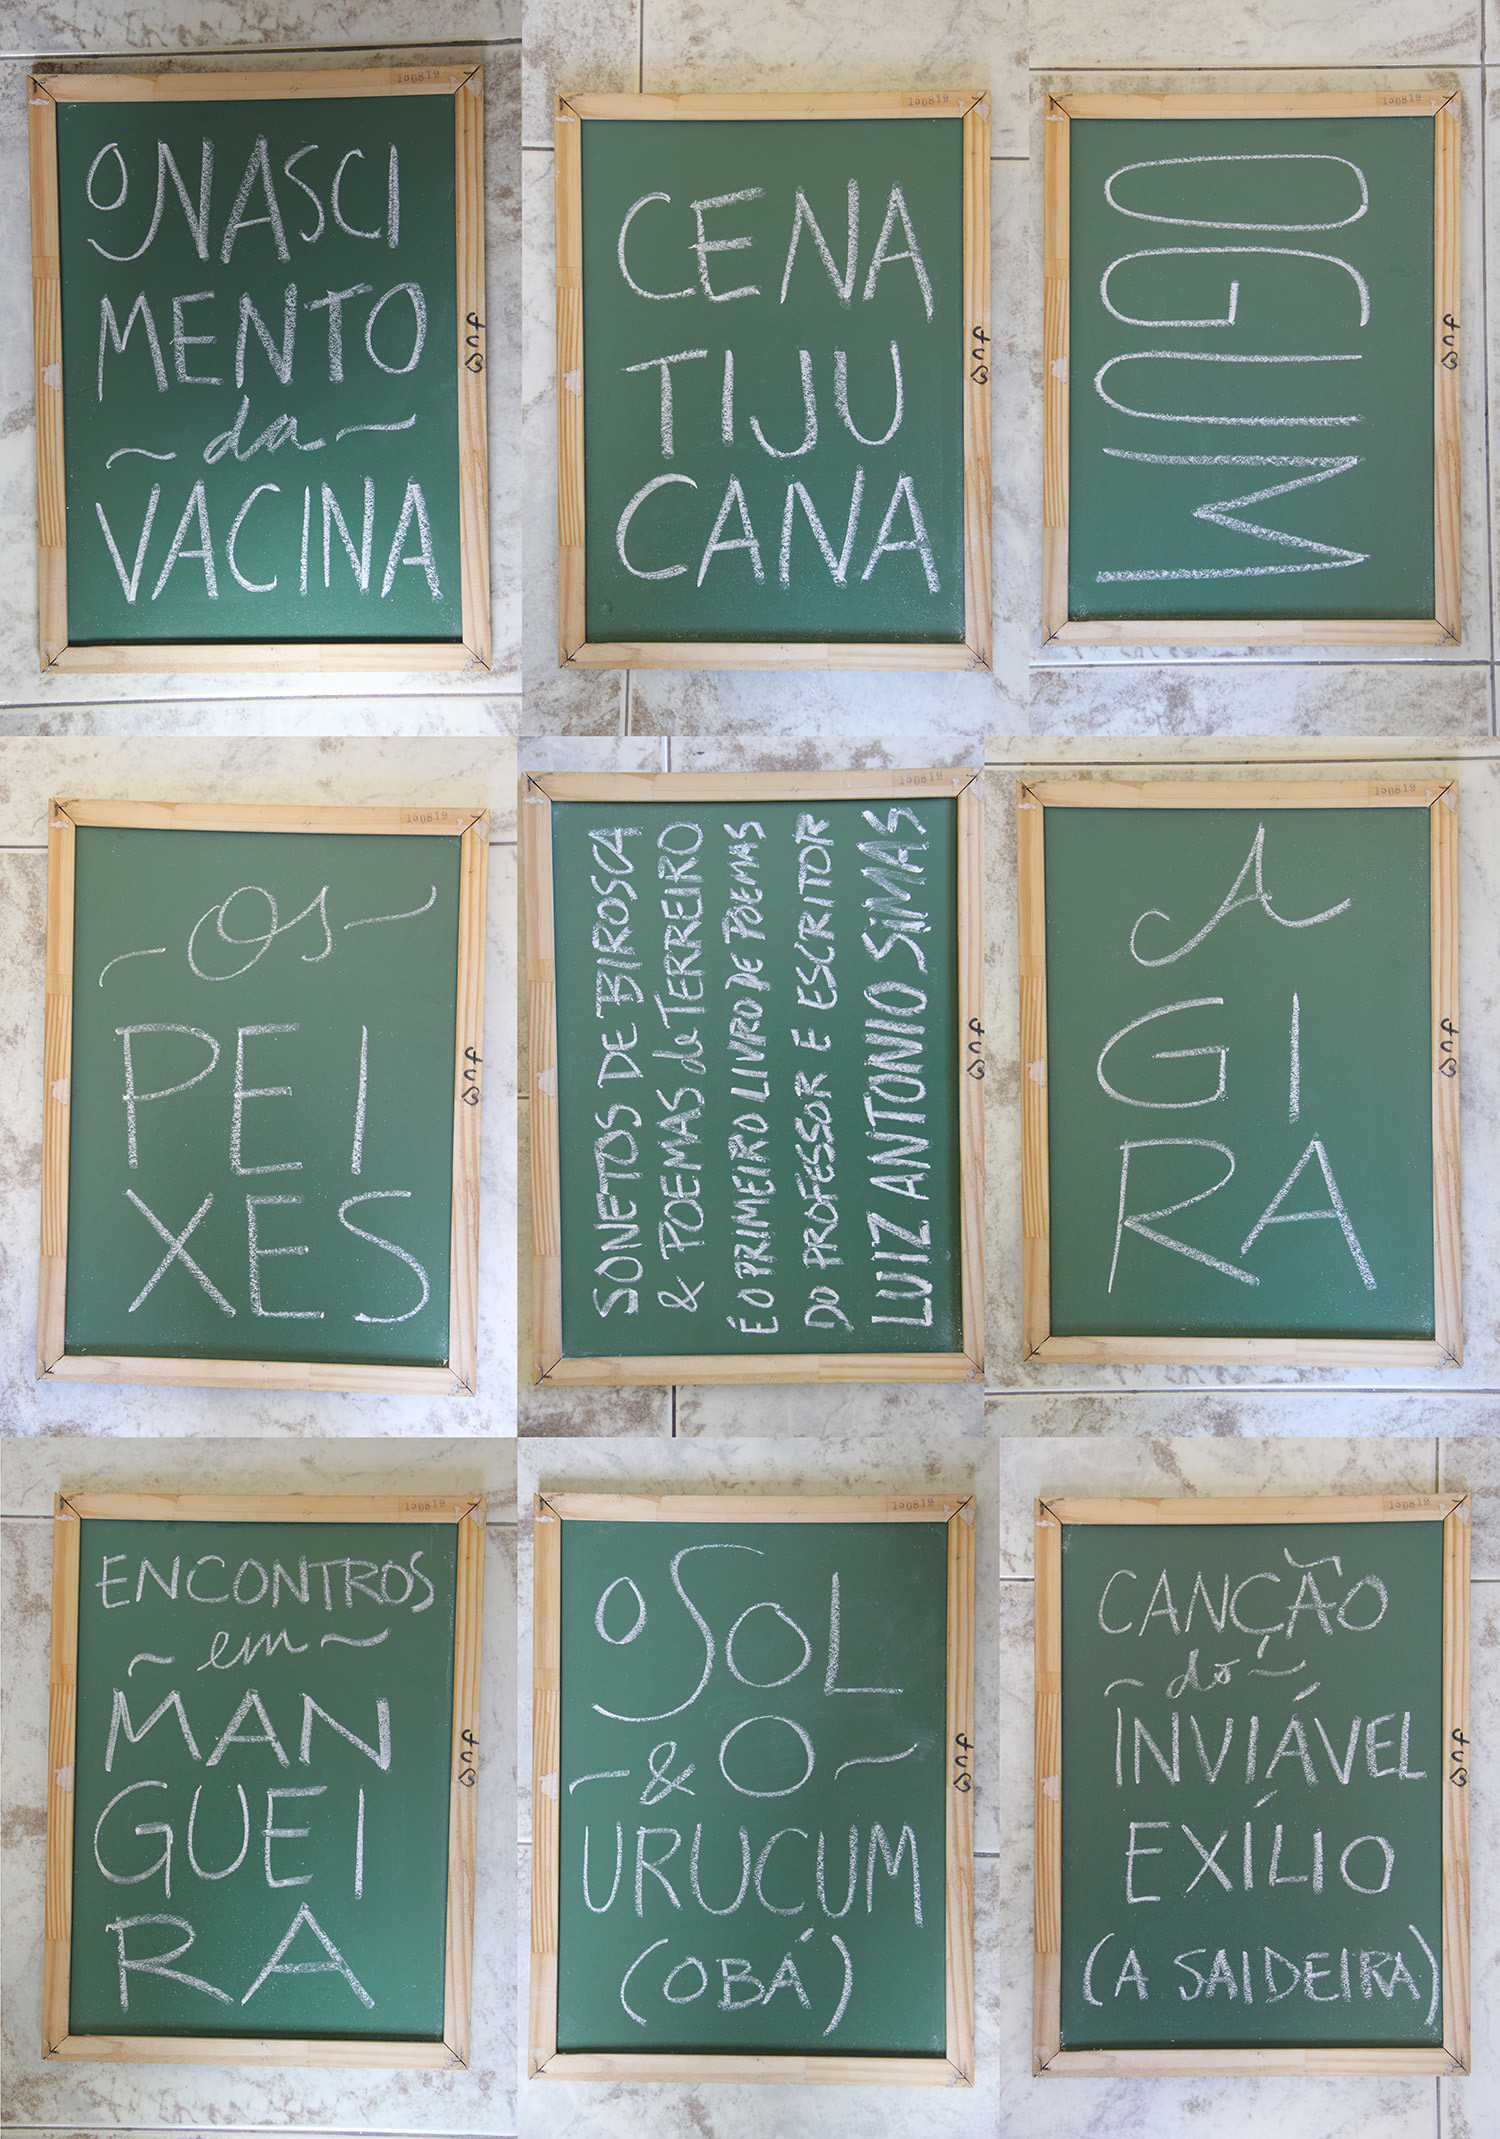 150819
O NASCI
MENTO
~ da ~
VACINA
wnf
150819
CENA
TIJU
CANA
wnf
150819
OGUM
wnf
150819
~ Os ~
PEI
XES
wnf
150819
SONETOS DE BIROSCA
& POEMAS de TERREIRO
É O PRIMEIRO LIVRO DE POEMAS
DO PROFESSOR E ESCRITOR
LUIZ ANTONIO SIMAS
wnf
150819
A
GI
RA
wnf
150819
ENCONTROS
~ em ~
MAN
GUEI
RA
wnf
150819
O SOL
~ & O ~
URUCUM
(OBÁ)
wnf
150819
CANÇÃO
~ do ~
INVIÁVEL
EXÍLIO
(A SAIDEIRA)
wnf